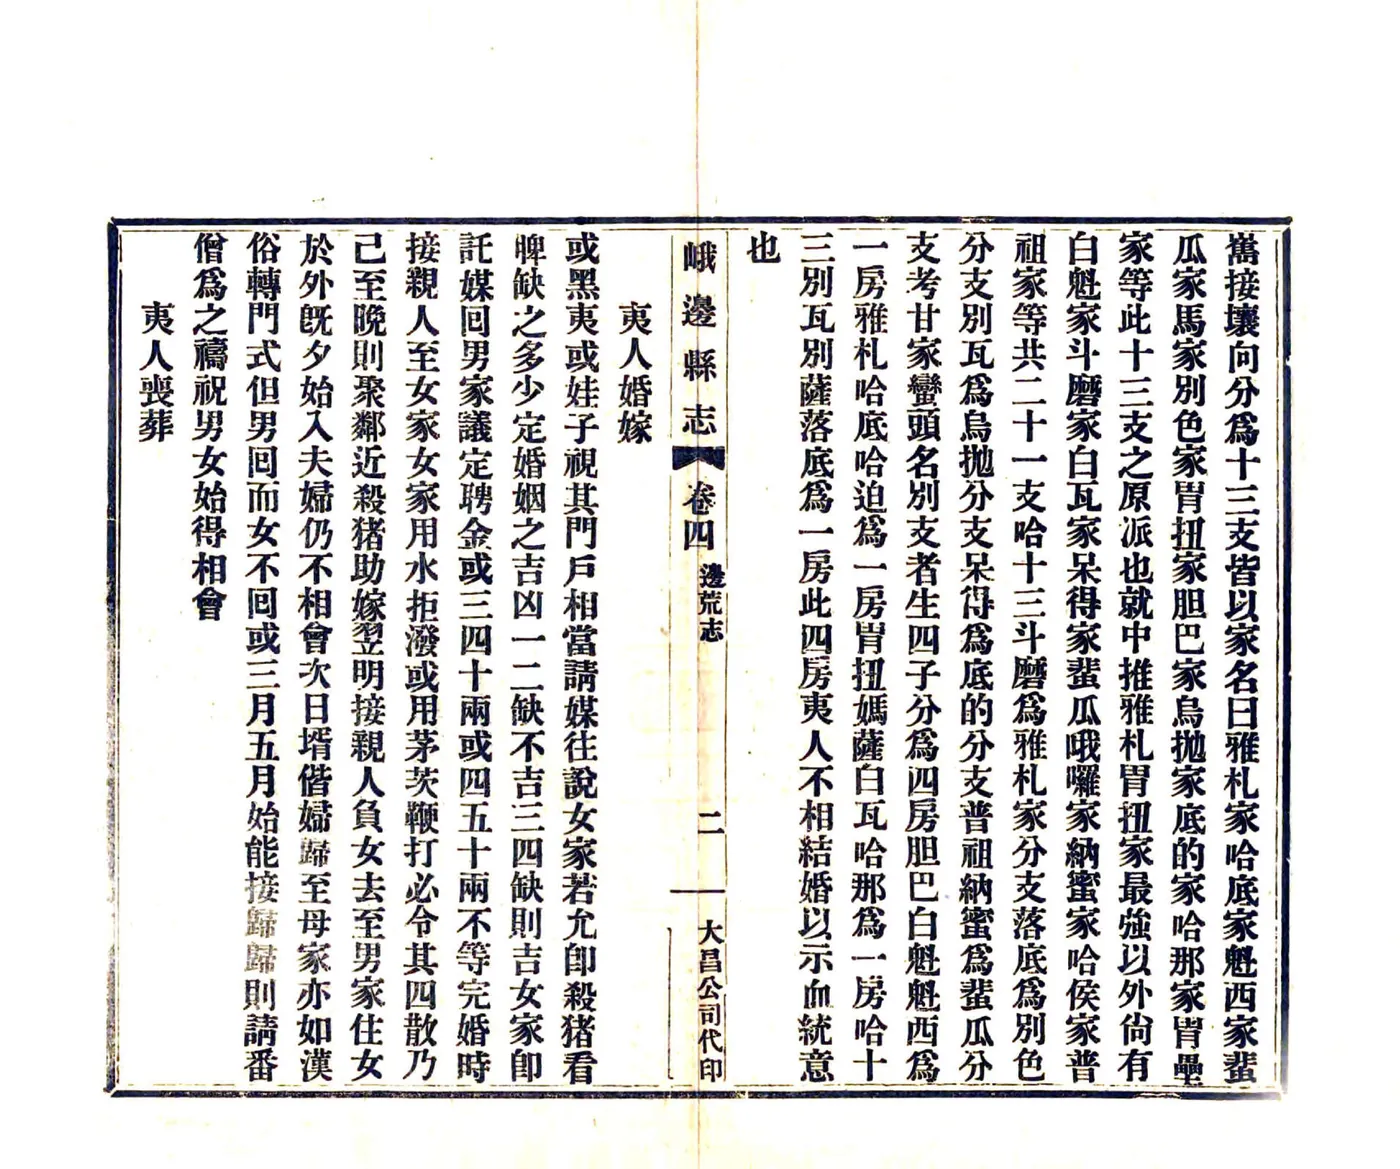 嶲接壤向分爲十三支皆以家名曰雅札家哈底家魁西家蜚
瓜家馬家別色家胃扭家胆巴家烏拋家底的家哈那家胃壘
家等此十三支之原派也就中推雅札胃扭家最強以外尙有
白魁家斗磨家白瓦家呆得家蜚瓜哦囉家納蜜家哈侯家普
祖家等共二十一支哈十三斗磨爲雅札家分支落底爲別色
分支別瓦爲烏拋分支呆得爲底的分支普祖納蜜爲蜚瓜分
支考甘家蠻頭名別支者生四子分爲四房胆巴白魁魁西爲
一房雅札哈底哈迫爲一房胃扭媽薩白瓦哈那爲一房哈十
三別瓦別薩落底爲一房此四房夷人不相結婚以示血統意
也
峨邊縣志 卷四 邊荒志 二 大昌公司代印
夷人婚嫁
或黑夷或娃子視其門戶相當請媒往說女家若允卽殺猪看
脾缺之多少定婚姻之吉凶一二缺不吉三四缺則吉女家卽
託媒回男家議定聘金或三四十兩或四五十兩不等完婚時
接親人至女家女家用水拒潑或用茅茨鞭打必令其四散乃
已至晚則聚鄰近殺猪助嫁翌明接親人負女去至男家住女
於外旣夕始入夫婦仍不相會次日壻偕婦歸至母家亦如漢
俗轉門式但男回而女不回或三月五月始能接歸歸則請番
僧爲之禱祝男女始得相會
夷人喪葬